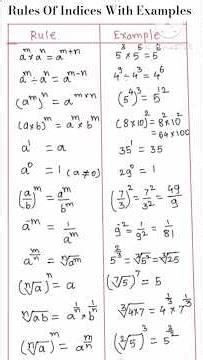 Rules Of Indices With Examples
Rule Example
aᵐ × aⁿ = aᵐ⁺ⁿ 5³ × 5⁵ = 5⁸
aᵐ ÷ aⁿ = aᵐ⁻ⁿ 4⁹ ÷ 4³ = 4⁶
(aᵐ)ⁿ = aᵐˣⁿ (5⁴)³ = 5¹²
(a×b)ᵐ = aᵐ × bᵐ (8×10)² = 8² × 10²
= 64×100
a¹ = a 35¹ = 35
a⁰ = 1 (a≠0) 29⁰ = 1
(a/b)ᵐ = aᵐ/bᵐ (7/3)² = 7²/3² = 49/9
a⁻ᵐ = 1/aᵐ 9⁻² = 1/9² = 1/81
a^(m/n) = ⁿ√aᵐ 5^(2/3) = ³√5² = ³√25
(ⁿ√a)ⁿ = a (⁷√5)⁷ = 5
ⁿ√ab = a^(1/n) × b^(1/n) ³√4×7 = 4^(1/3) × 7^(1/3)
(ⁿ√a)ᵐ = a^(m/n) (²√5)³ = 5^(3/2)